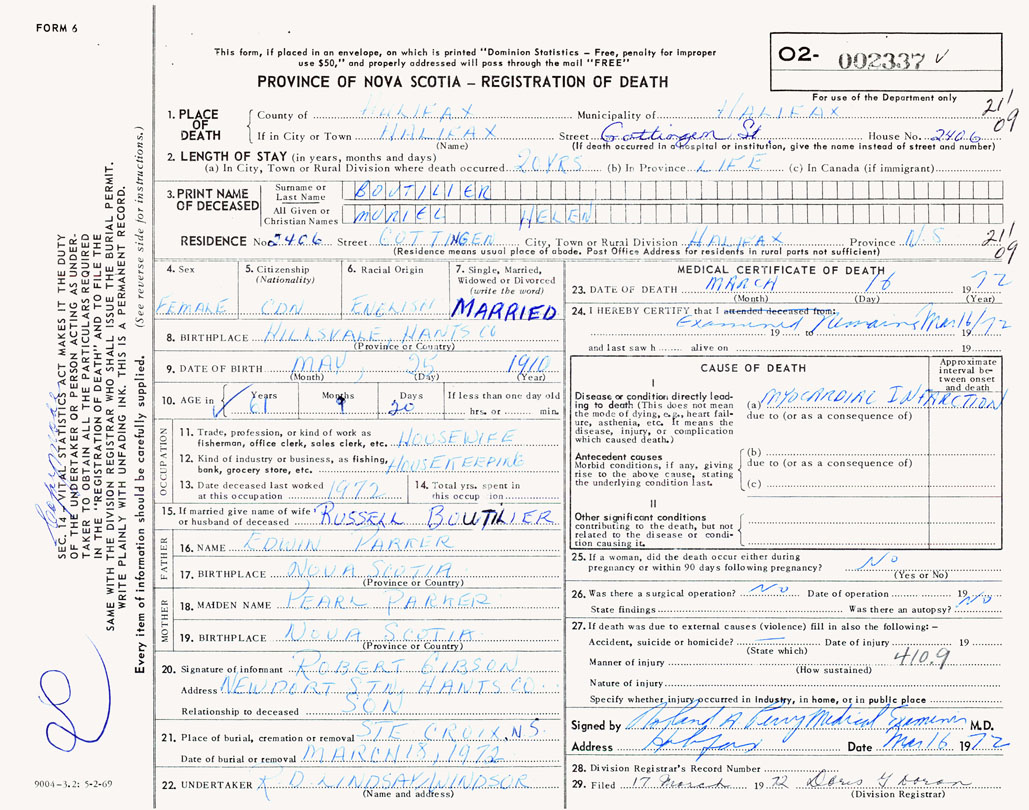 FORM 6
This form, if placed in an envelope, on which is printed "Dominion Statistics – Free, penalty for improper
use $50," and properly addressed will pass through the mail "FREE"
PROVINCE OF NOVA SCOTIA – REGISTRATION OF DEATH
O2- 002337 ✓
For use of the Department only
21/
09
1. PLACE OF DEATH
County of HALIFAX Municipality of HALIFAX
If in City or Town HALIFAX Street Gottingen St House No. 2406
(Name) (If death occurred in a hospital or institution, give the name instead of street and number)
2. LENGTH OF STAY (in years, months and days)
(a) In City, Town or Rural Division where death occurred 20 YRS (b) In Province LIFE (c) In Canada (if immigrant)
3. PRINT NAME OF DECEASED
Surname or Last Name BOUTILIER
All Given or Christian Names MURIEL HELEN
RESIDENCE No. 2406 Street GOTTINGEN City, Town or Rural Division HALIFAX Province N.S
(Residence means usual place of abode. Post Office Address for residents in rural parts not sufficient)
21/
09
4. Sex
FEMALE
5. Citizenship
(Nationality)
CDN
6. Racial Origin
ENGLISH
7. Single, Married,
Widowed or Divorced
(write the word)
MARRIED
8. BIRTHPLACE HILLSVALE, HANTS CO
(Province or Country)
9. DATE OF BIRTH MAY, 25 1910
(Month) (Day) (Year)
10. AGE in ✓ Years 61 Months 9 Days 20 If less than one day old
hrs. or min.
OCCUPATION
11. Trade, profession, or kind of work as
fisherman, office clerk, sales clerk, etc. HOUSEWIFE
12. Kind of industry or business, as fishing,
bank, grocery store, etc. HOUSEKEEPING
13. Date deceased last worked
at this occupation 1972
14. Total yrs. spent in
this occupation
15. If married give name of wife
or husband of deceased RUSSELL BOUTILIER
FATHER
16. NAME EDWIN PARKER
17. BIRTHPLACE NOVA SCOTIA
(Province or Country)
MOTHER
18. MAIDEN NAME PEARL PARKER
19. BIRTHPLACE NOVA SCOTIA
(Province or Country)
20. Signature of informant ROBERT GIBSON
Address NEWPORT STN, HANTS CO
Relationship to deceased SON
21. Place of burial, cremation or removal STE CROIX, N.S
Date of burial or removal MARCH 18, 1972
22. UNDERTAKER R D LINDSAY WINDSOR
(Name and address)
MEDICAL CERTIFICATE OF DEATH
23. DATE OF DEATH MARCH 16 1972
(Month) (Day) (Year)
24. I HEREBY CERTIFY that I attended deceased from:
Examined Remains Mar 16/72
19 to 19
and last saw h alive on 19
CAUSE OF DEATH
Approximate
interval be-
tween onset
and death
I
Disease or condition directly lead-
ing to death (This does not mean
the mode of dying, e.g., heart fail-
ure, asthenia, etc. It means the
disease, injury, or complication
which caused death.)
(a) MYOCARDIAL INFARCTION
due to (or as a consequence of)
Antecedent causes
Morbid conditions, if any, giving
rise to the above cause, stating
the underlying condition last.
(b)
due to (or as a consequence of)
(c)
II
Other significant conditions
contributing to the death, but not
related to the disease or condi-
tion causing it.
25. If a woman, did the death occur either during
pregnancy or within 90 days following pregnancy? No
(Yes or No)
26. Was there a surgical operation? No Date of operation 19
State findings Was there an autopsy? No
27. If death was due to external causes (violence) fill in also the following: –
Accident, suicide or homicide? — Date of injury 19
(State which)
Manner of injury 410.9
(How sustained)
Nature of injury
Specify whether injury occurred in Industry, in home, or in public place
Signed by Roland A Perry Medical Examiner M.D.
Address Halifax Date Mar 16 1972
28. Division Registrar's Record Number
29. Filed 17 March 1972 Doris Y Doran
(Division Registrar)
SEC. 14 – VITAL STATISTICS ACT MAKES IT THE DUTY
OF THE UNDERTAKER OR PERSON ACTING AS UNDER-
TAKER TO OBTAIN ALL THE PARTICULARS REQUIRED
IN THE "REGISTRATION OF DEATH" AND TO FILE THE
SAME WITH THE DIVISION REGISTRAR WHO SHALL ISSUE THE BURIAL PERMIT.
WRITE PLAINLY WITH UNFADING INK. THIS IS A PERMANENT RECORD.
Every item of information should be carefully supplied. (See reverse side for instructions.)
9004-3.2: 5-2-69